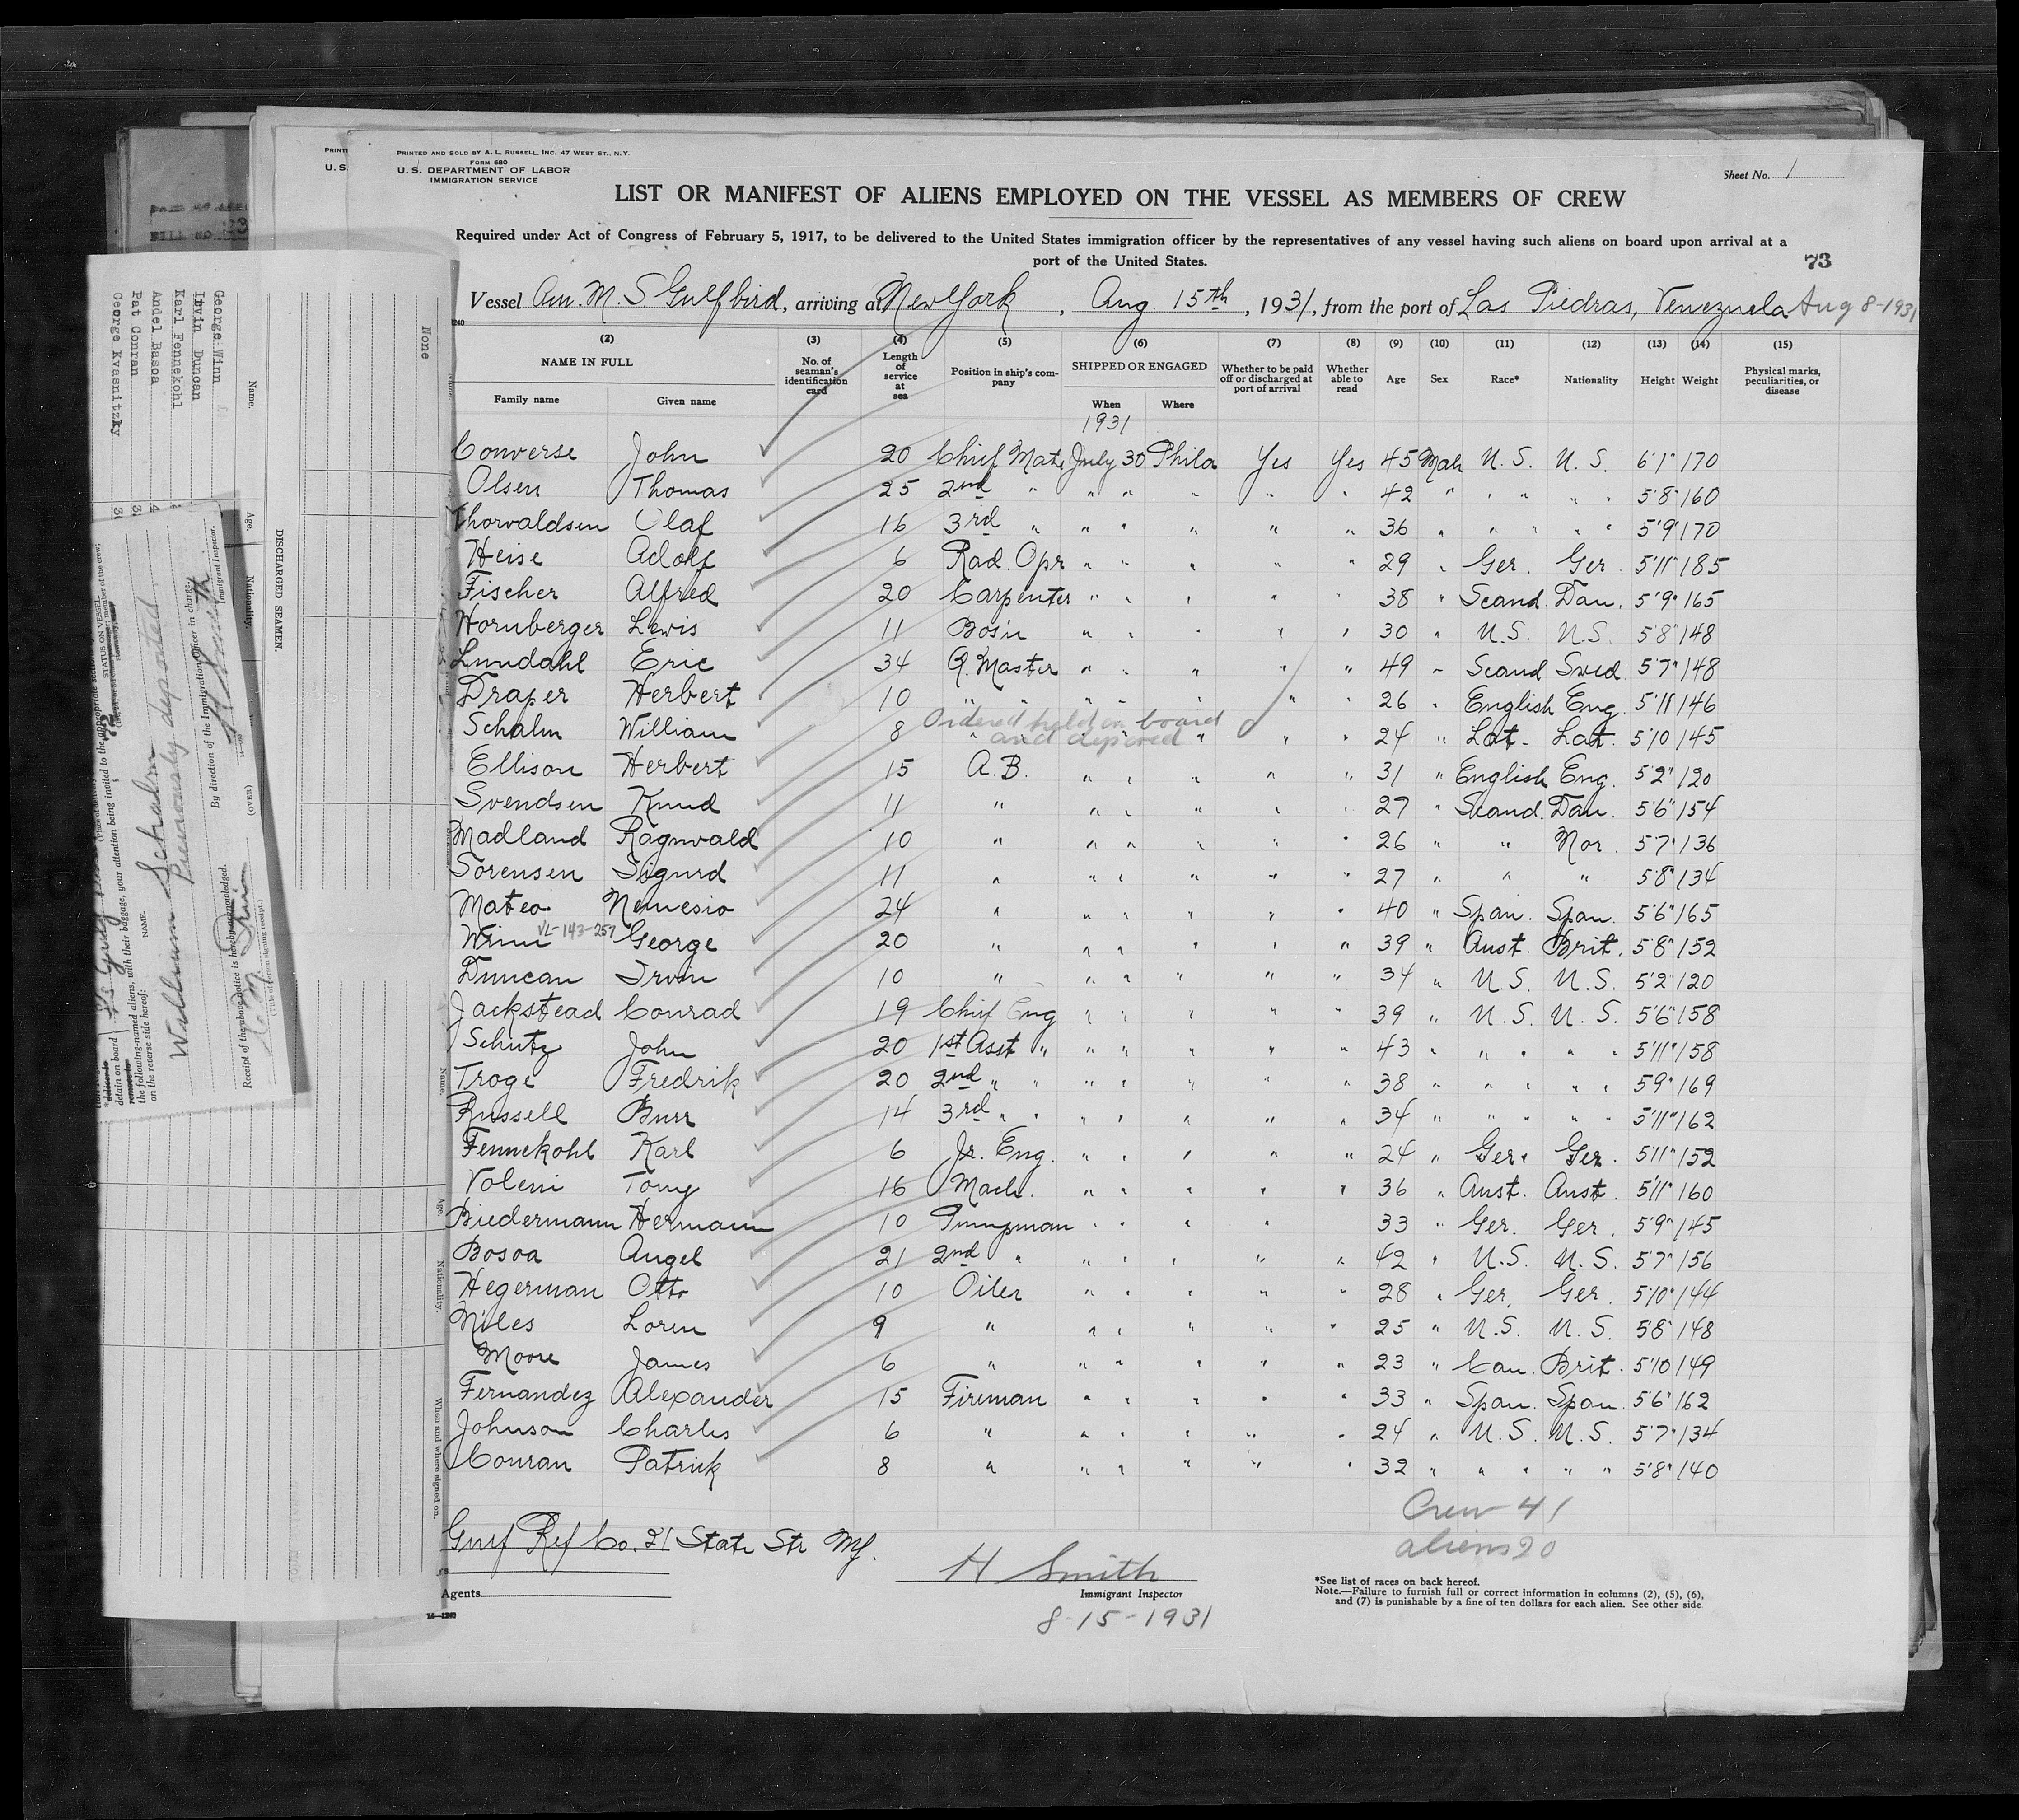 PRINTED AND SOLD BY A. L. RUSSELL, INC. 47 WEST ST., N.Y.
FORM 680
U. S. DEPARTMENT OF LABOR
IMMIGRATION SERVICE
Sheet No. 1
LIST OR MANIFEST OF ALIENS EMPLOYED ON THE VESSEL AS MEMBERS OF CREW
Required under Act of Congress of February 5, 1917, to be delivered to the United States immigration officer by the representatives of any vessel having such aliens on board upon arrival at a
port of the United States.
73
Vessel Am. M. S Gulfbird, arriving at New York, Aug. 15th, 1931, from the port of Las Piedras, Venezuela Aug 8-1931
(2) (3) (4) (5) (6) (7) (8) (9) (10) (11) (12) (13) (14) (15)
NAME IN FULL
Family name Given name
No. of seaman's identification card
Length of service at sea
Position in ship's company
SHIPPED OR ENGAGED
When Where
Whether to be paid off or discharged at port of arrival
Whether able to read
Age Sex Race* Nationality Height Weight
Physical marks, peculiarities, or disease
1931
Converse John 20 Chief Mate July 30 Phila Yes Yes 45 Male U. S. U. S. 6'1" 170
Olsen Thomas 25 2nd " " " " " " 42 " " " " " 5'8" 160
Thorvaldsen Olaf 16 3rd " " " " " " 36 " " " " " 5'9" 170
Heise Adolf 6 Rad. Opr " " " " " 29 " Ger. Ger 5'11" 185
Fischer Alfred 20 Carpenter " " " " " 38 " Scand. Dan. 5'9" 165
Hornberger Lewis 11 Bos'n " " " " " 30 " U.S. U.S. 5'8" 148
Lundahl Eric 34 Q. Master " " " " " 49 " Scand Swed 5'7" 148
Draper Herbert 10 " " " " " " 26 " English Eng. 5'11 146
Ordered held on board
and deported
Schalm William 8 " " " " " " 24 " Lat. Lat. 5'10 145
Ellison Herbert 15 A.B. " " " " " 31 " English Eng. 5'2" 120
Svendsen Knud 11 " " " " " " 27 " Scand. Dan. 5'6" 154
Madland Ragnvald 10 " " " " " " 26 " " Nor. 5'7" 136
Sorensen Sigurd 11 " " " " " " 27 " " " 5'8" 134
Mateo Nemesio 24 " " " " " " 40 " Span. Span. 5'6" 165
Winn VL-143-257 George 20 " " " " " " 39 " Aust. Brit. 5'8" 152
Duncan Irvin 10 " " " " " " 34 " U.S. U.S. 5'2" 120
Jackstead Conrad 19 Chief Eng " " " " " 39 " U. S. U. S. 5'6" 158
Schutz John 20 1st Asst " " " " " " 43 " " " " " 5'11" 158
Troge Fredrik 20 2nd " " " " " " " 38 " " " " " 5'9" 169
Russell Burr 14 3rd " " " " " " " 34 " " " " " 5'11" 162
Fennekohl Karl 6 Jr. Eng. " " " " " 24 " Ger. Ger. 5'11" 152
Voleni Tony 16 Mach. " " " " " 36 " Aust. Aust. 5'11" 160
Biedermann Hermann 10 Pumpman " " " " 33 " Ger. Ger. 5'9" 145
Bosoa Angel 21 2nd " " " " " " 42 " U.S. U.S. 5'7" 156
Hegerman Otto 10 Oiler " " " " " 28 " Ger. Ger. 5'10" 144
Niles Loren 9 " " " " " " 25 " U.S. U.S. 5'8" 148
Moore James 6 " " " " " " 23 " Can. Brit. 5'10 149
Fernandez Alexander 15 Fireman " " " " " 33 " Span. Span. 5'6" 162
Johnson Charles 6 " " " " " " 24 " U.S. U.S. 5'7" 134
Conran Patrick 8 " " " " " " 32 " " " " " 5'8" 140
Crew 41
aliens 20
Gulf Ref Co. 21 State Str NY.
Agents
H Smith
Immigrant Inspector
8-15-1931
*See list of races on back hereof.
Note.—Failure to furnish full or correct information in columns (2), (5), (6),
and (7) is punishable by a fine of ten dollars for each alien. See other side
14—1240
DISCHARGED SEAMEN
Name. Age. Nationality.
George Winn
Irvin Duncan
Karl Fennekohl
Andel Basoa
Pat Conran
George Kvasnitzky
None
Name. Age. Nationality. When and where signed on.
STATUS ON VESSEL
detain on board
the following-named aliens, with their baggage, your attention being invited to the appropriate
on the reverse side hereof:
NAME.
William Schalm
Previously deported
By direction of the Immigration Officer in charge,
H Smith
Immigrant Inspector.
(OVER)
Receipt of the above notice is hereby acknowledged.